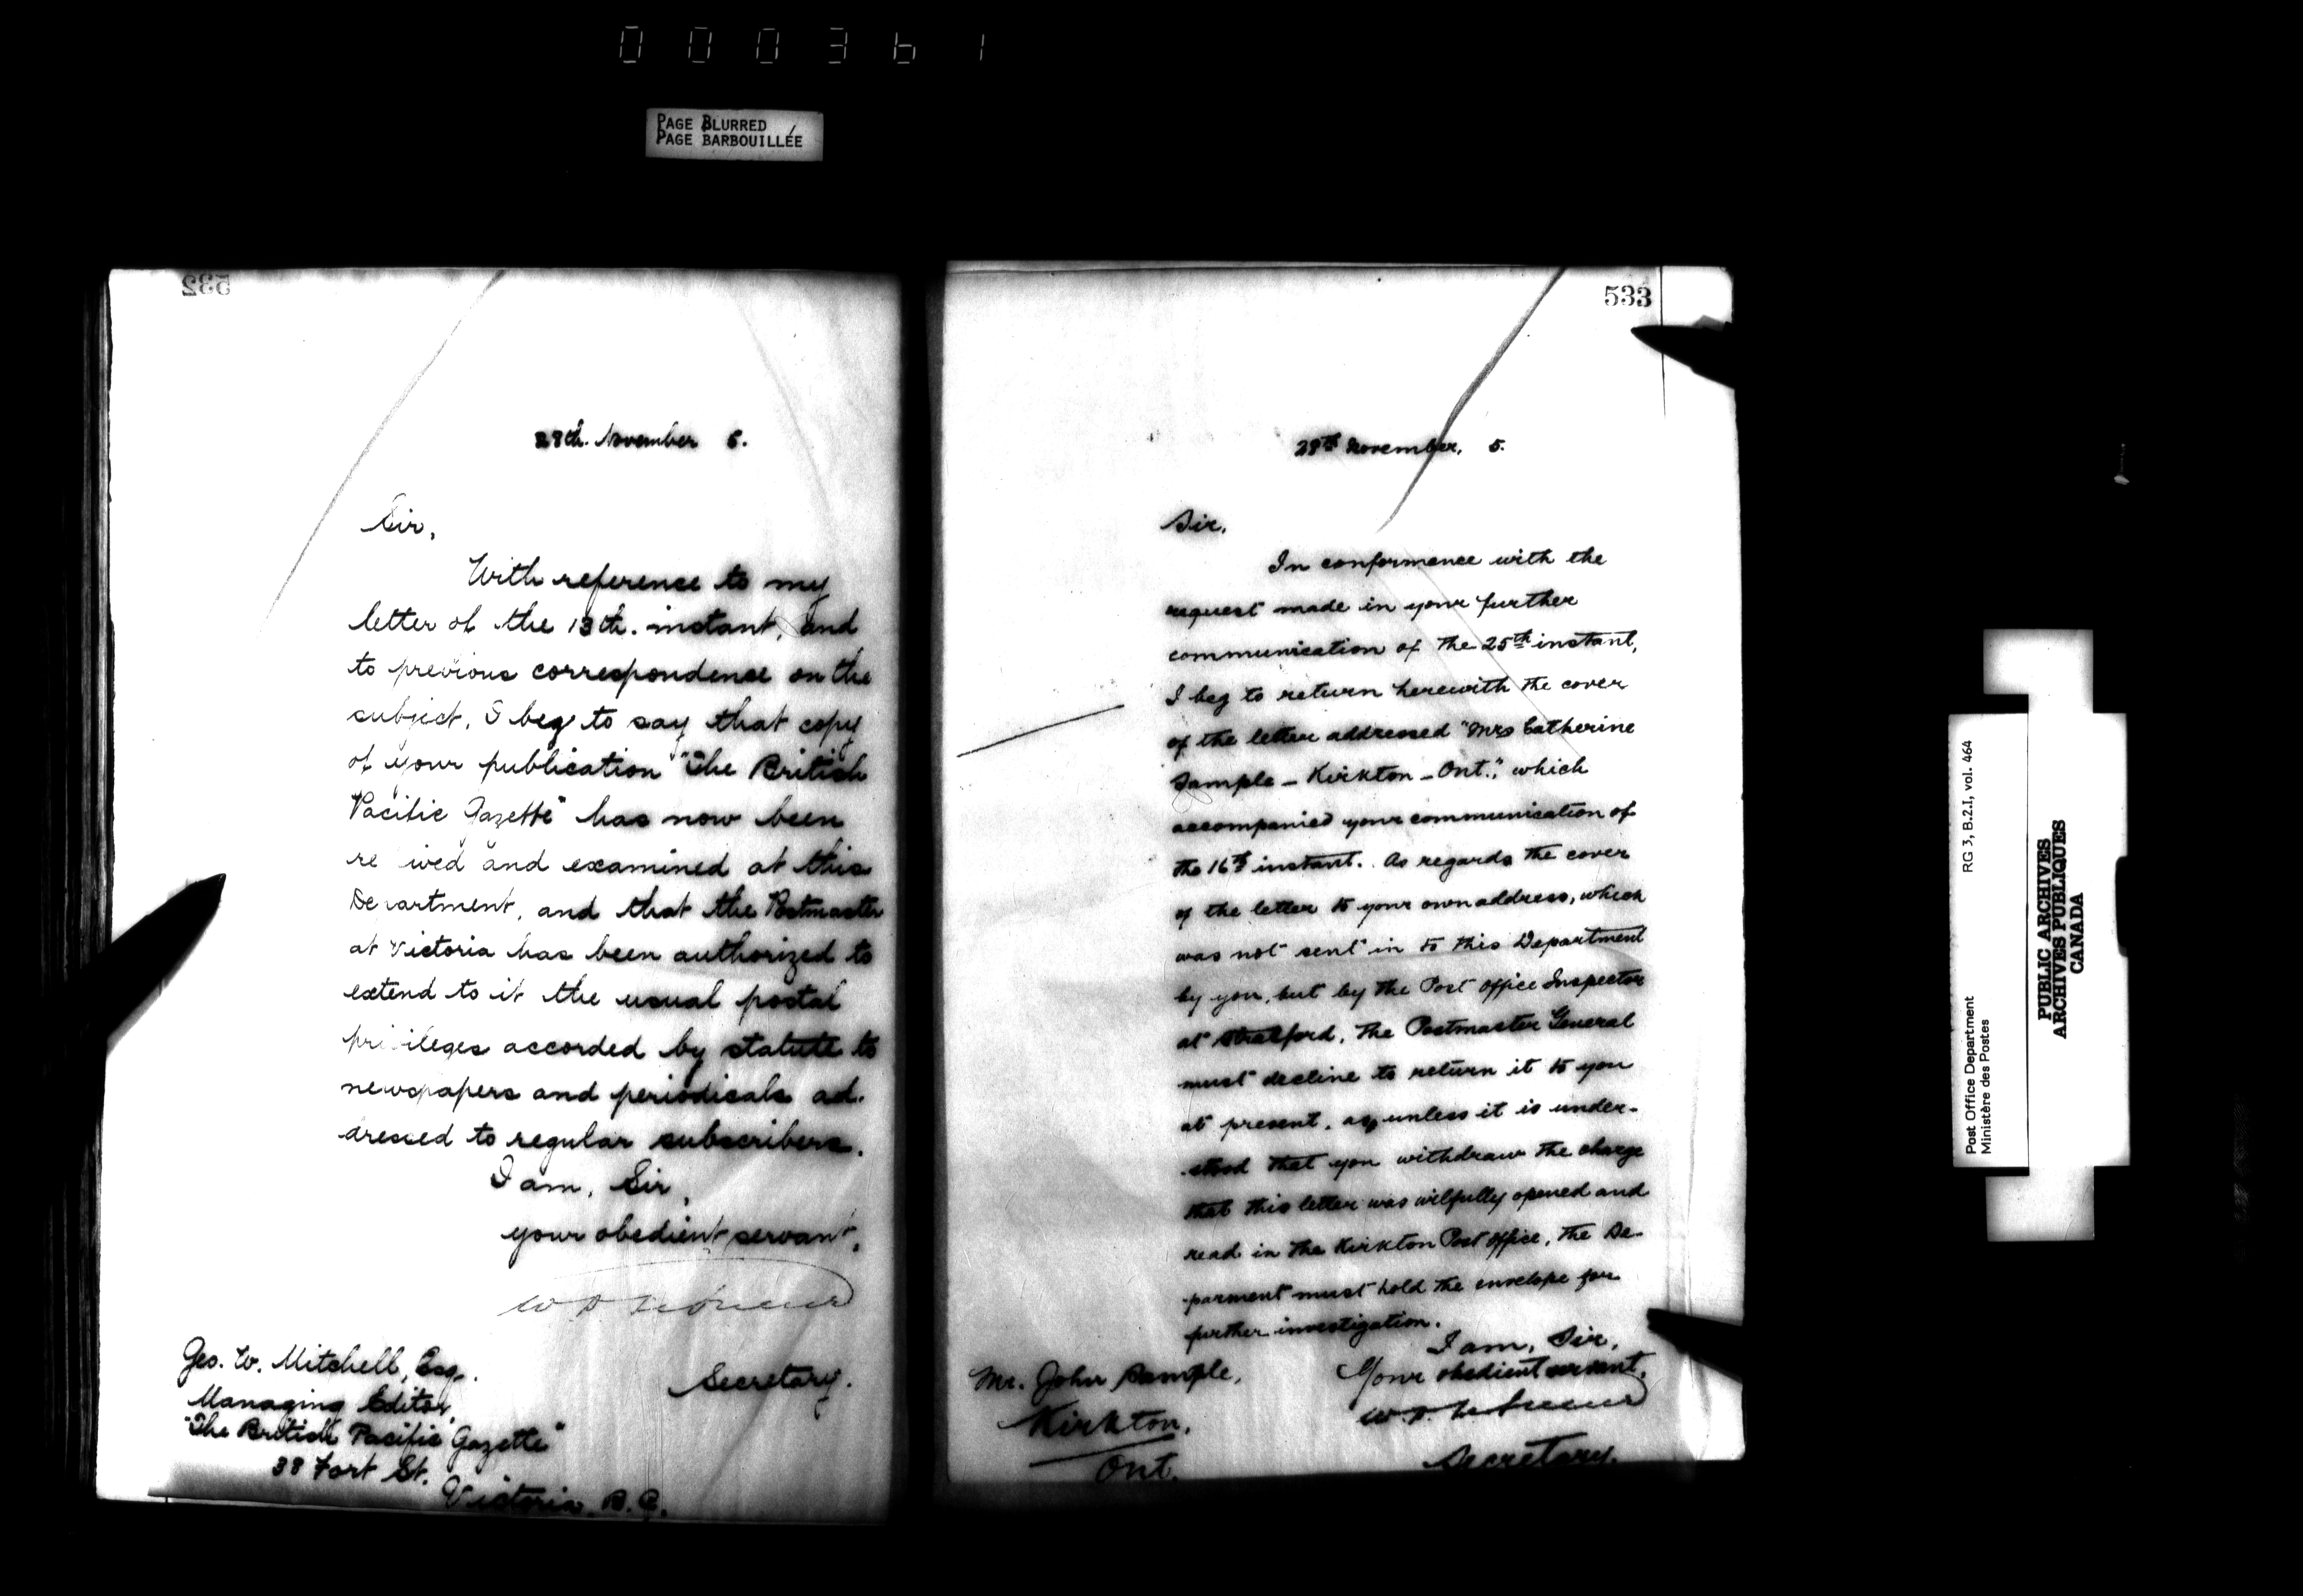 000361
PAGE BLURRED
PAGE BARBOUILLÉE
532
28th. November 5.
Sir,
With reference to my
letter of the 13th. instant, and
to previous correspondence on the
subject, I beg to say that copy
of your publication "The British
Pacific Gazette" has now been
re ived and examined at this
De artment, and that the Postmaster
at Victoria has been authorized to
extend to it the usual postal
pri ileges accorded by statute to
newspapers and periodicals ad-
dressed to regular subscribers.
I am, Sir,
your obedient servant,
Secretary.
Geo. W. Mitchell, Esq.
Managing Editor
"The British Pacific Gazette"
38 Fort St.
Victoria, B.C.
533
28th November, 5.
Sir,
In conformence with the
request made in your further
communication of the 25th instant,
I beg to return herewith the cover
of the letter addressed "Mrs Catherine
Sample - Kirkton - Ont.", which
accompanied your communication of
the 16th instant. As regards the cover
of the letter to your own address, which
was not sent in to this Department
by you, but by the Post Office Inspector
at Stratford, the Postmaster General
must decline to return it to you
at present, as, unless it is under-
stood that you withdraw the charge
that this letter was wilfully opened and
read in the Kirkton Post Office, the De-
parment must hold the envelope for
further investigation.
I am, Sir,
Your obedient servant,
Secretary.
Mr. John Sample,
Kirkton,
Ont.
Post Office Department
Ministère des Postes
RG 3, B.2.I, vol. 464
PUBLIC ARCHIVES
ARCHIVES PUBLIQUES
CANADA